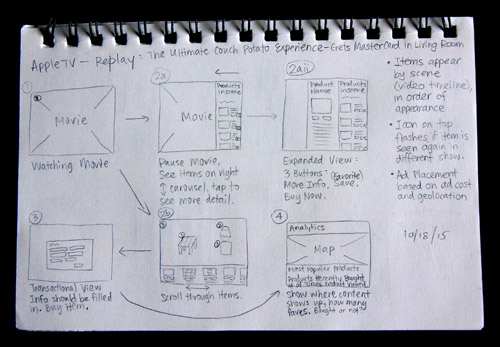 AppleTV – Replay: The Ultimate Couch Potato Experience – Gets MasterCard in Living Room
1
Movie
Watching Movie
2a
Movie
Products
in scene
Pause movie,
See items on right
↑ carousel, tap to
↓ see more detail.
2aii
Product
Name
Products
in scene
Expanded View:
3 Buttons: (Favorite)
More Info, Save,
Buy Now.
• Items appear
by scene
(video timeline),
in order of
appearance
• Icon on top
flashes if item is
seen again in
different show.
• Ad Placement
based on ad cost
and geolocation
10/18/15
3
Transactional View
Info should be filled
in. Buy Item.
2b
Scroll through items.
4
Analytics
Map
Most Popular Products
Products Recently Bought
# of Times Product Viewed
Show where content
shows up, how many
faves. Bought or not?